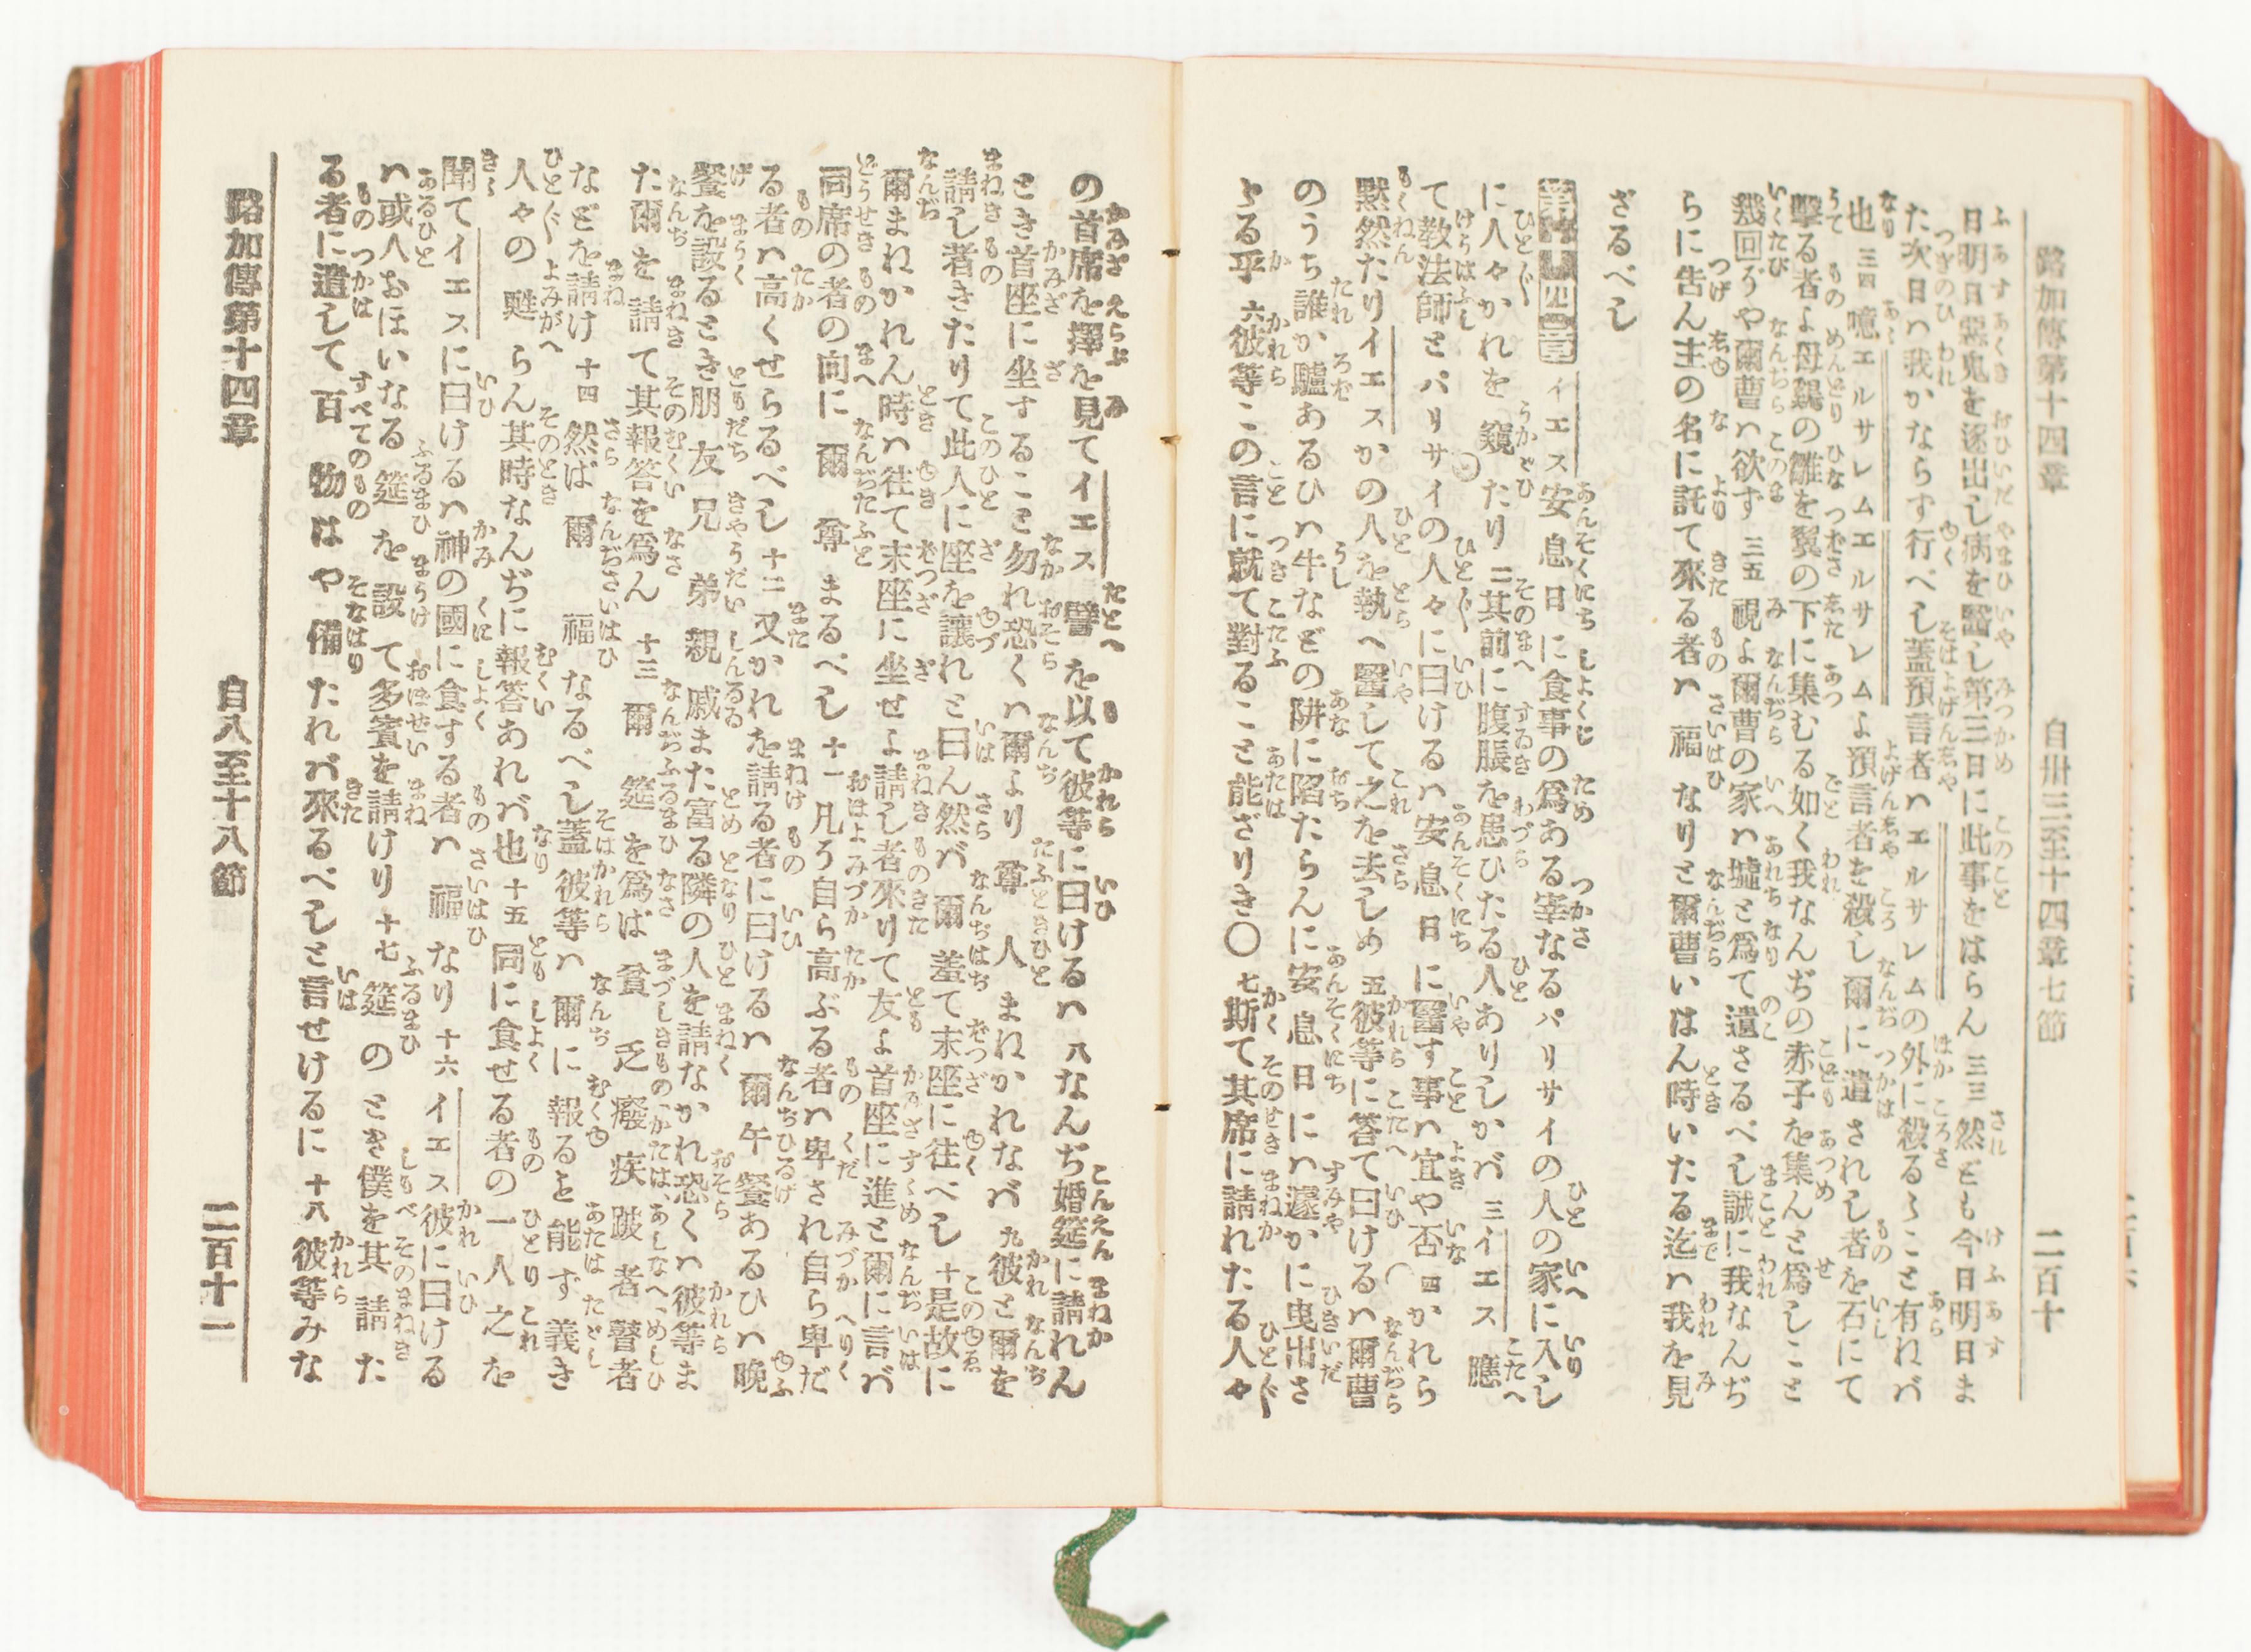 路加傳第十四章 自卅三至十四章七節 二百十
日明日惡鬼を逐出し病を醫し第三日に此事をはらん 三三 然ども今日明日ま
た次日ハ我かならず行べし蓋預言者ハエルサレムの外に殺るゝこと有ねバ
也 三四 噫エルサレムエルサレムよ預言者を殺し爾に遣されし者を石にて
擊る者よ母鷄の雛を翼の下に集むる如く我なんぢの赤子を集んと爲しこと
幾回ぞや爾曹ハ欲ず 三五 視よ爾曹の家ハ墟と爲て遺さるべし誠に我なんぢ
らに告ん主の名に託て來る者ハ福なりと爾曹いはん時いたる迄ハ我を見
ざるべし
第十四章 イエス安息日に食事の爲ある宰なるパリサイの人の家に入し
に人々かれを窺たり 二 其前に腹脹を患ひたる人ありしかバ 三 イエス應
て教法師とパリサイの人々に曰けるハ安息日に醫す事ハ宜や否 四 かれら
默然たりイエスかの人を執へ醫して之を去しめ 五 彼等に答て曰けるハ爾曹
のうち誰か驢あるひハ牛などの阱に陷たらんに安息日にハ遽かに曳出さ
ゞる乎 六 彼等この言に就て對ること能ざりき〇 七 斯て其席に請れたる人々
の首席を擇を見てイエス譬を以て彼等に曰けるハ 八 なんぢ婚筵に請れん
とき首座に坐すること勿れ恐くハ爾より尊人まねかれなバ 九 彼と爾を
請し者きたりて此人に座を讓れと曰ん然バ爾羞て末座に往べし 十 是故に
爾まねかれん時ハ往て末座に坐せよ請し者來りて友よ首座に進と爾に言バ
同席の者の向に爾尊まるべし 十一 凡そ自ら高ぶる者ハ卑され自ら卑だ
る者ハ高くせらるべし 十二 又かれを請る者に曰けるハ爾午餐あるひハ晩
餐を設るとき朋友兄弟親戚また富る隣の人を請なかれ恐くハ彼等ま
た爾を請て其報答を爲ん 十三 爾筵を爲ば貧乏癈疾跛者瞽者
などを請け 十四 然ば爾福なるべし蓋彼等ハ爾に報ると能ず義き
人々の甦らん其時なんぢに報答あれバ也 十五 同に食せる者の一人之を
聞てイエスに曰けるハ神の國に食する者ハ福なり 十六 イエス彼に曰ける
ハ或人おほいなる筵を設て多賓を請けり 十七 筵のとき僕を其請た
る者に遣して百物はや備たれバ來るべしと言せけるに 十八 彼等みな
路加傳第十四章 自八至十八節 二百十一